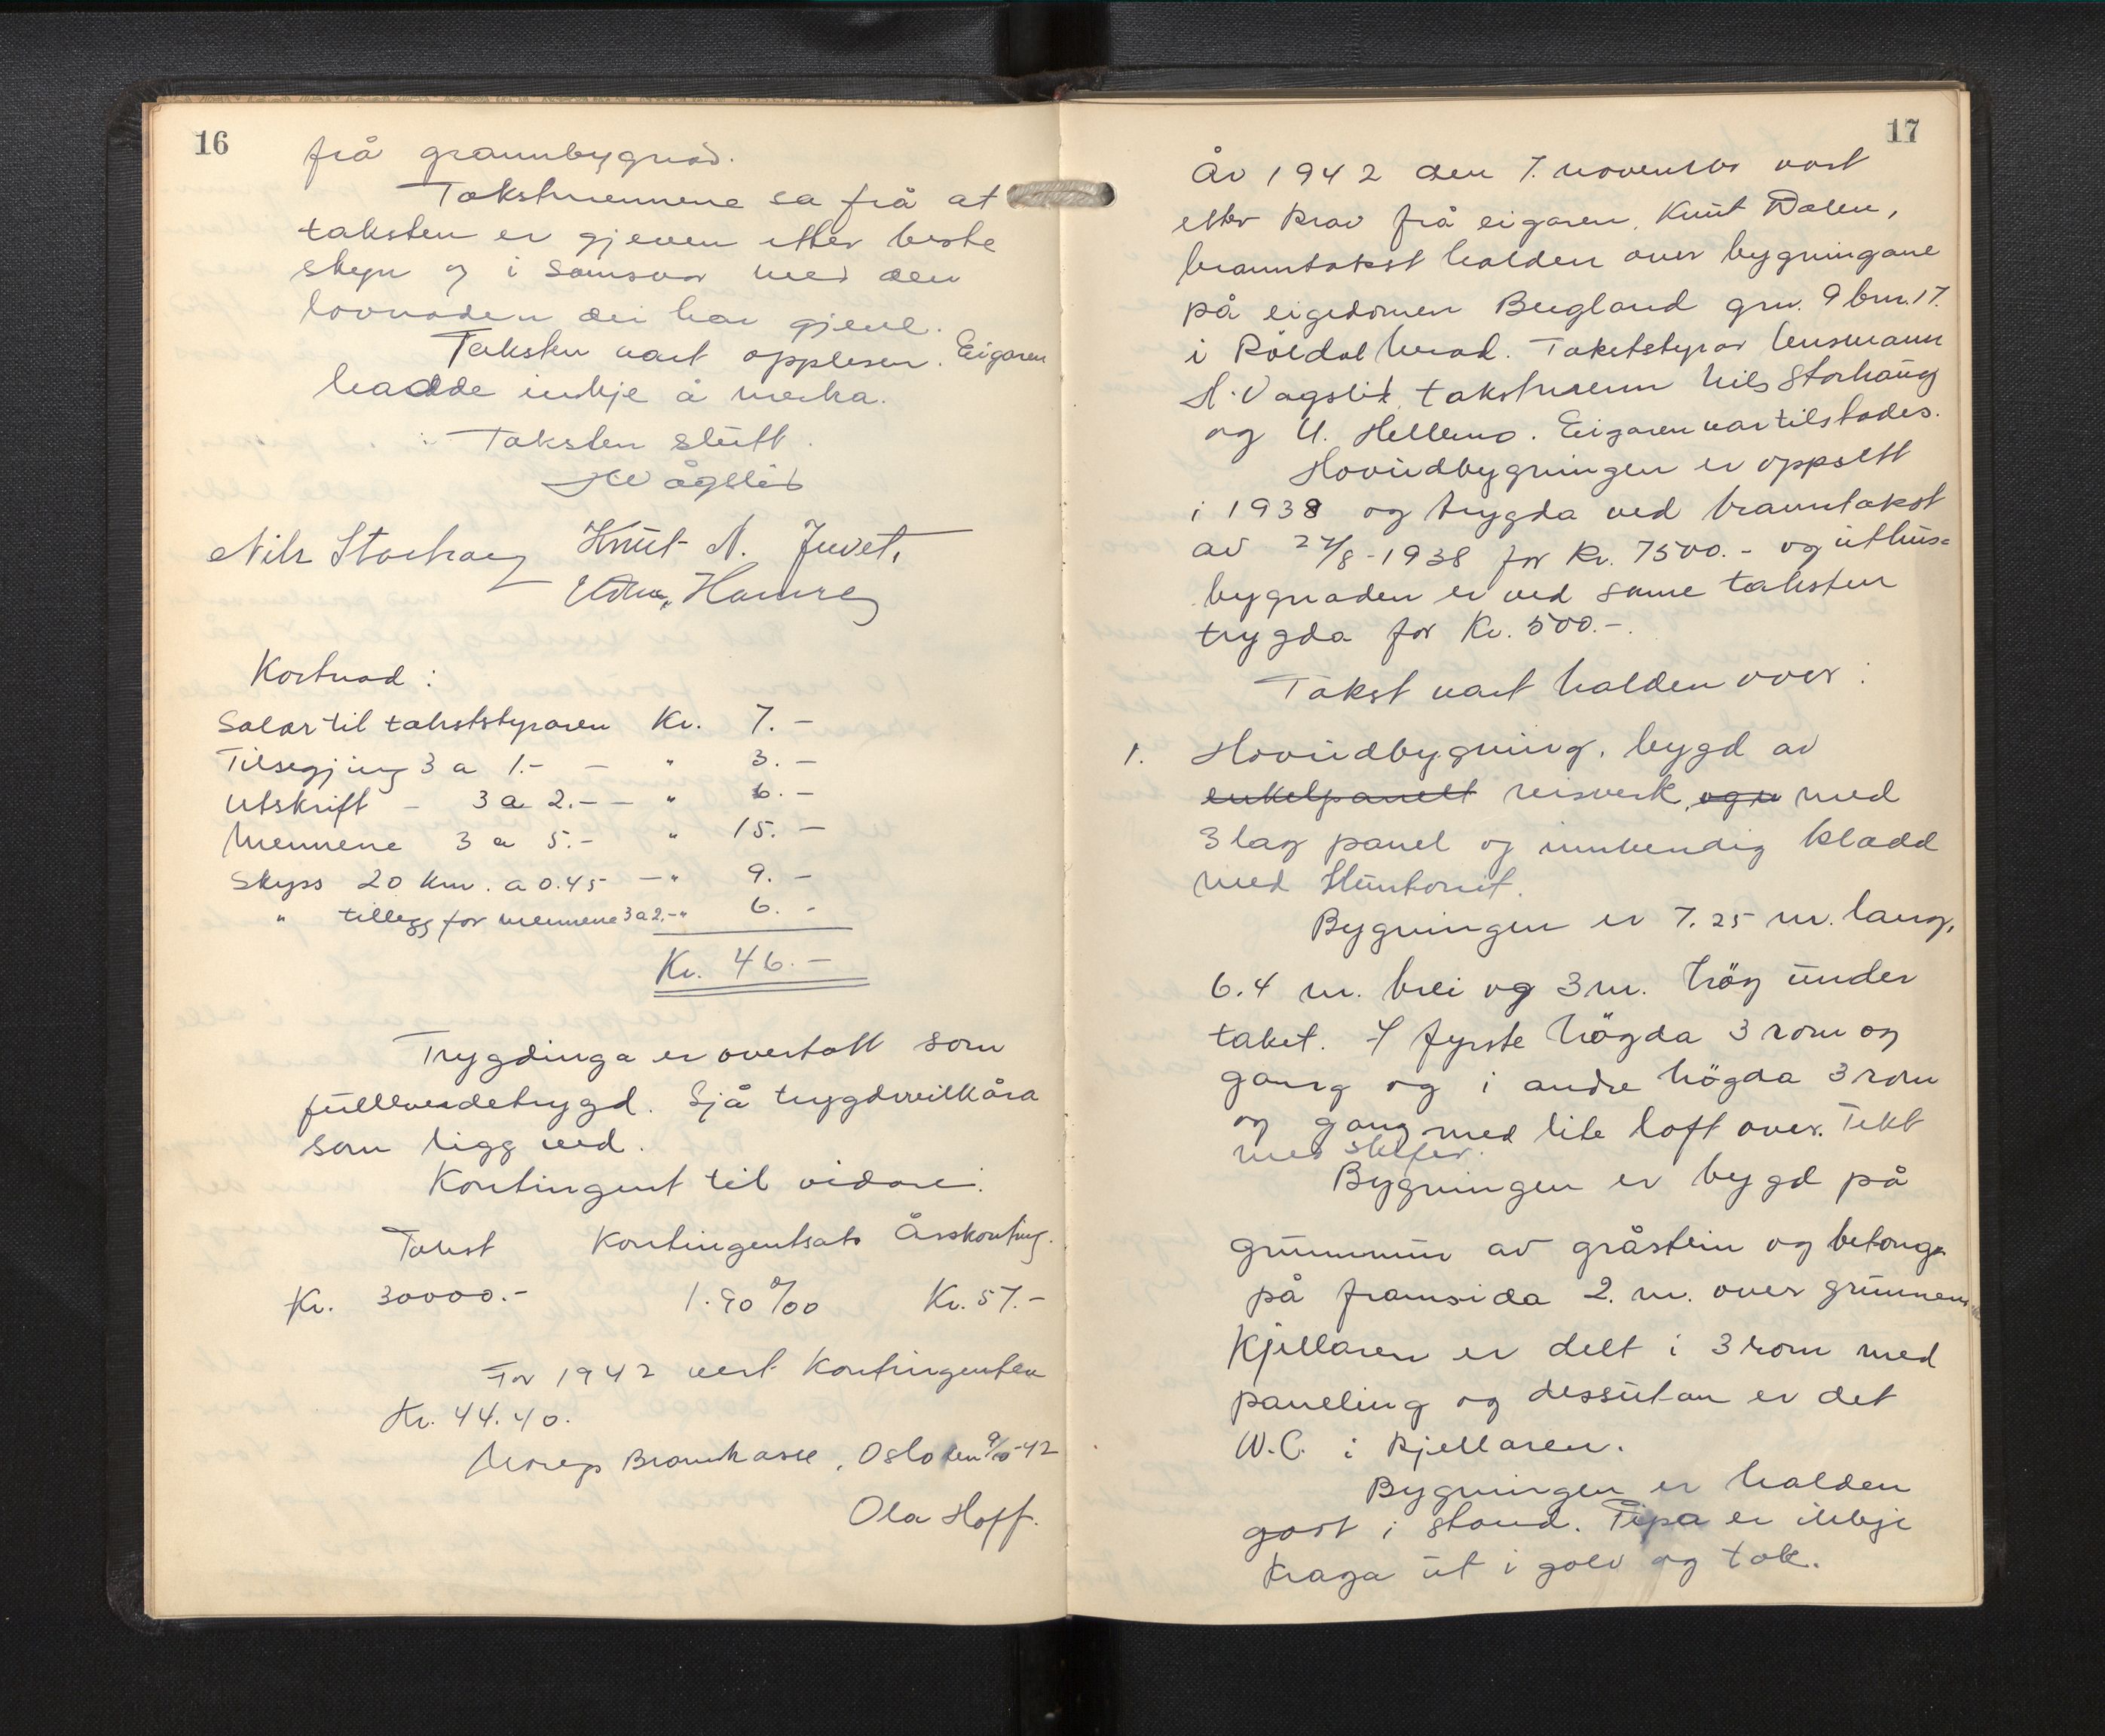 16
frå grannbygnad.
Takstmennene sa frå at
taksten er gjeven etter beste
skyn og i samsvar med den
lovnaden dei har gjeve.
Taksten vart opplesen. Eigaren
hadde inkje å merka.
Taksten slutt.
H Vågslid
Nils Storhaug Knut N. Juvet.
Hamre
Kostnad:
Salar til takststyraren Kr. 7.-
Tilsegjing 3 a 1.- - " 3.-
Utskrift - 3 a 2.- - " 6.-
Mennene 3 a 5.- " 15.-
Skyss 20 km. a 0.45 - " 9.-
" tillegg for mennene 3 a 2.- " 6.-
Kr. 46.-
Trygdinga er overtatt som
fullverdetrygd. Sjå trygdevilkåra
som ligg ved.
Kontingent til vidare:
Takst Kontingentsats Årskonting.
Kr. 30000.- 1.90 ‰ Kr. 57.-
For 1942 vert kontingenten
Kr. 44.40.
Noregs Brannkasse, Oslo den 9/10-42
Ola Hoff.
17
År 1942 den 7. november vart
etter krav frå eigaren, Knut Dalen,
branntakst halden over bygningane
på eigedomen Bergland grn. 9 brn. 17.
i Röldal herad. Takststyrar lensmann
H. Vågslid, takstmenn Nils Storhaug
og U. Hellemo. Eigaren var tilstades.
Hovudbygningen er oppsett
i 1938 og trygda ved branntakst
av 27/8-1938 for kr. 7500.- og uthus=
bygnaden er ved same taksten
trygda for Kr. 500.-.
Takst vart halden over:
1. Hovudbygning, bygd av
enkelpanelt reisverk, og u med
3 lag panel og innvendig kledd
med Huntonit.
Bygningen er 7.25 m. lang,
6.4 m. brei og 3 m. hög under
taket. I fyrste högda 3 rom og
gang og i andre högda 3 rom
og gang med lite loft over. Tekt
med skifer.
Bygningen er bygd på
grunnmur av gråstein og betong
på framsida 2. m. over grunnen.
Kjellaren er delt i 3 rom med
paneling og dessutan er det
W.C. i kjellaren.
Bygningen er halden
godt i stand. Pipa er ikkje
kraga ut i golv og tak.